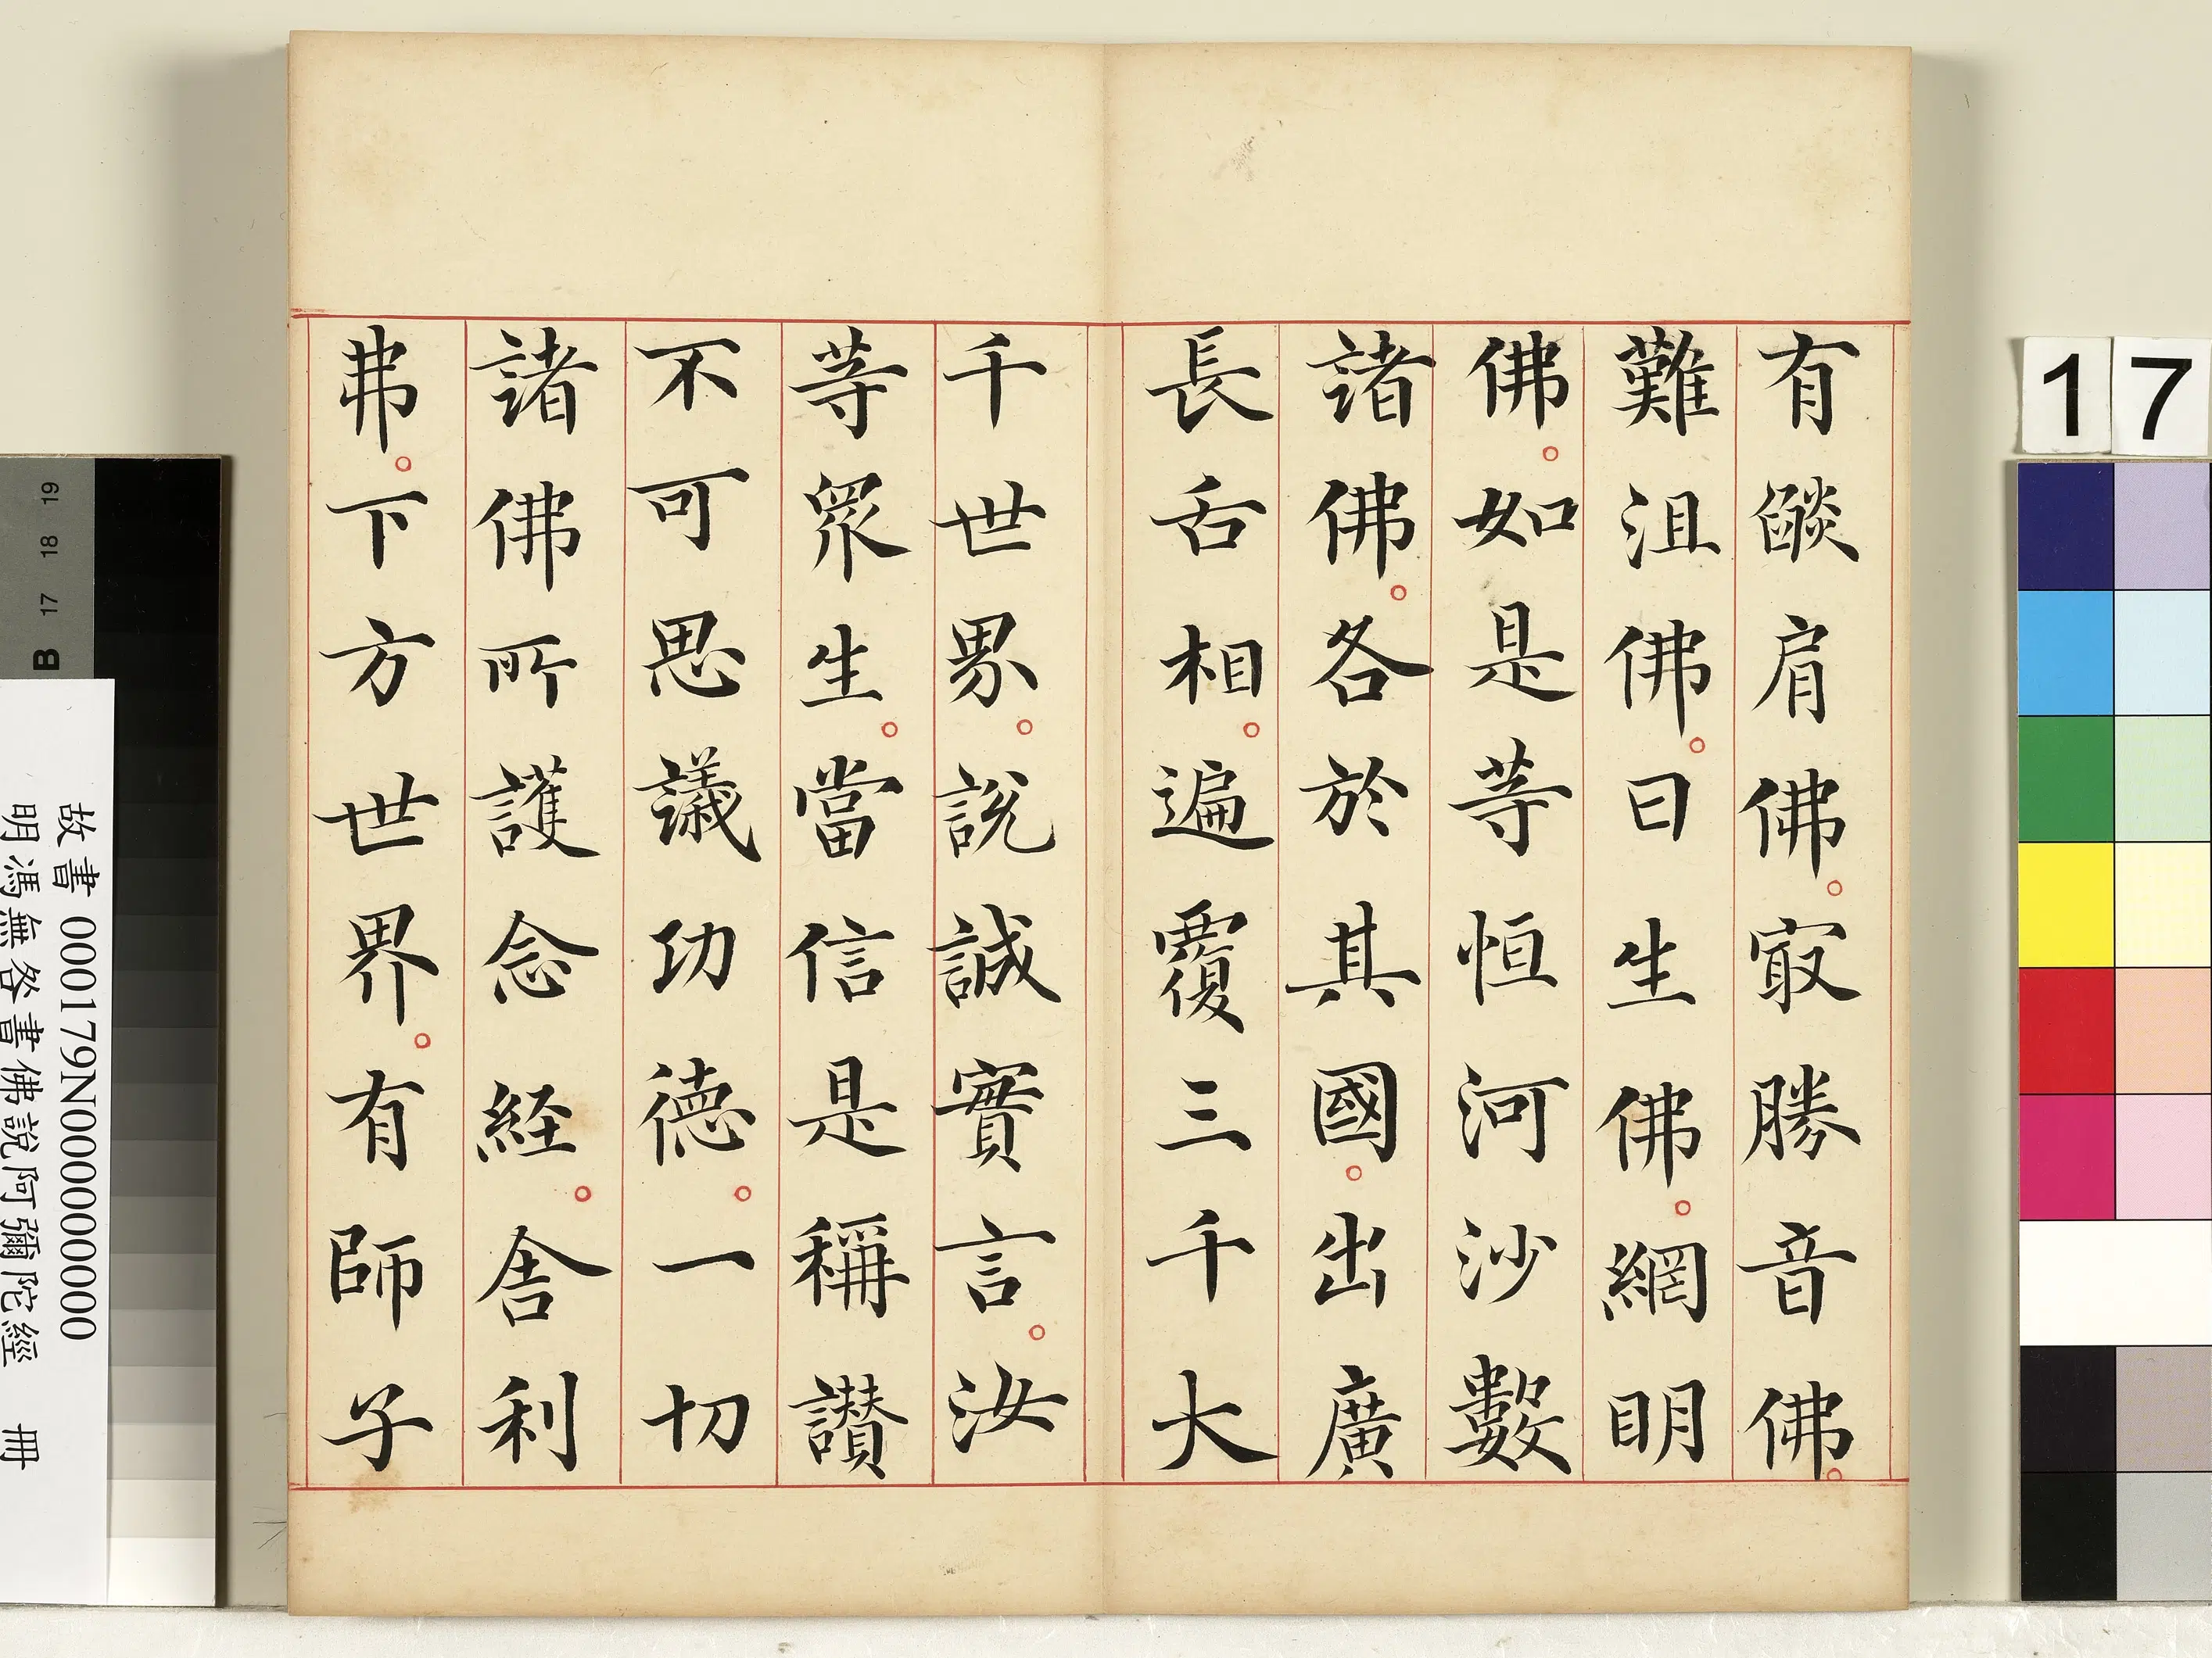 有燄肩佛。㝡勝音佛。
難沮佛。日生佛。網明
佛。如是等恒河沙數
諸佛。各於其國。出廣
長舌相。遍覆三千大
千世界。說誠實言。汝
等衆生。當信是稱讚
不可思議功德。一切
諸佛所護念経。舎利
弗。下方世界。有師子
17
故書 000179N000000000
明馮無咎書佛說阿彌陀經 冊
B 17 18 19